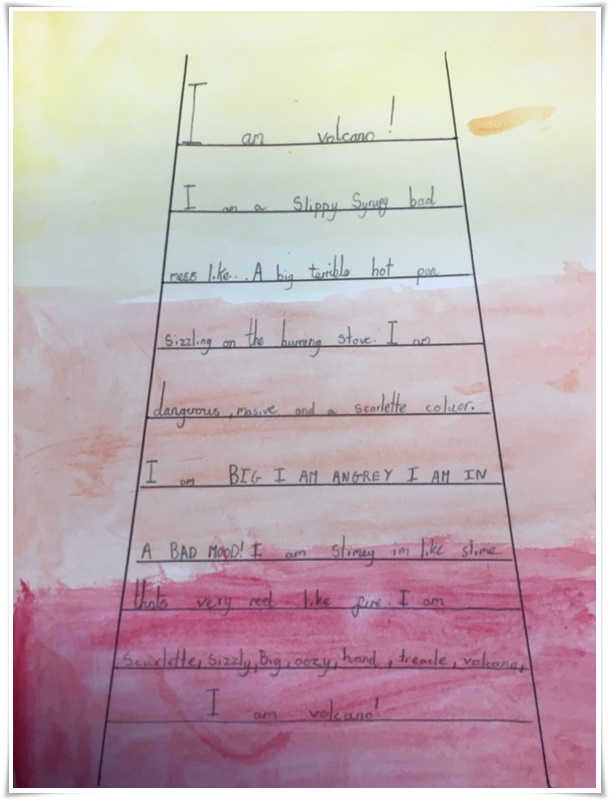 I am volcano!
I am a Slippy Syrupy bad
mess like... A big terrible hot pan
sizzling on the burning stove. I am
dangerous, masive and a scarlette coluor.
I am BIG I AM ANGREY I AM IN
A BAD MOOD! I am slimey im like slime
thats very reel like fire. I am
Scarlette, Sizzly, Big, oozy, hand, treacle, volcano,
I am volcano!